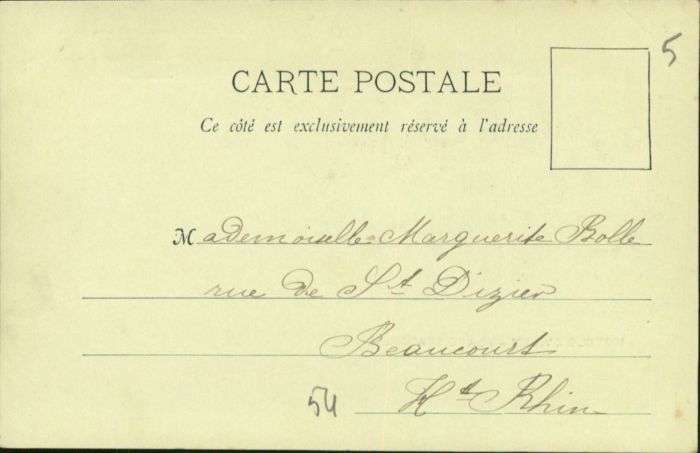 5
CARTE POSTALE
Ce côté est exclusivement réservé à l'adresse
Mademoiselle Marguerite Bolle
rue de St Dizier
Beaucourt
Ht Rhin
54